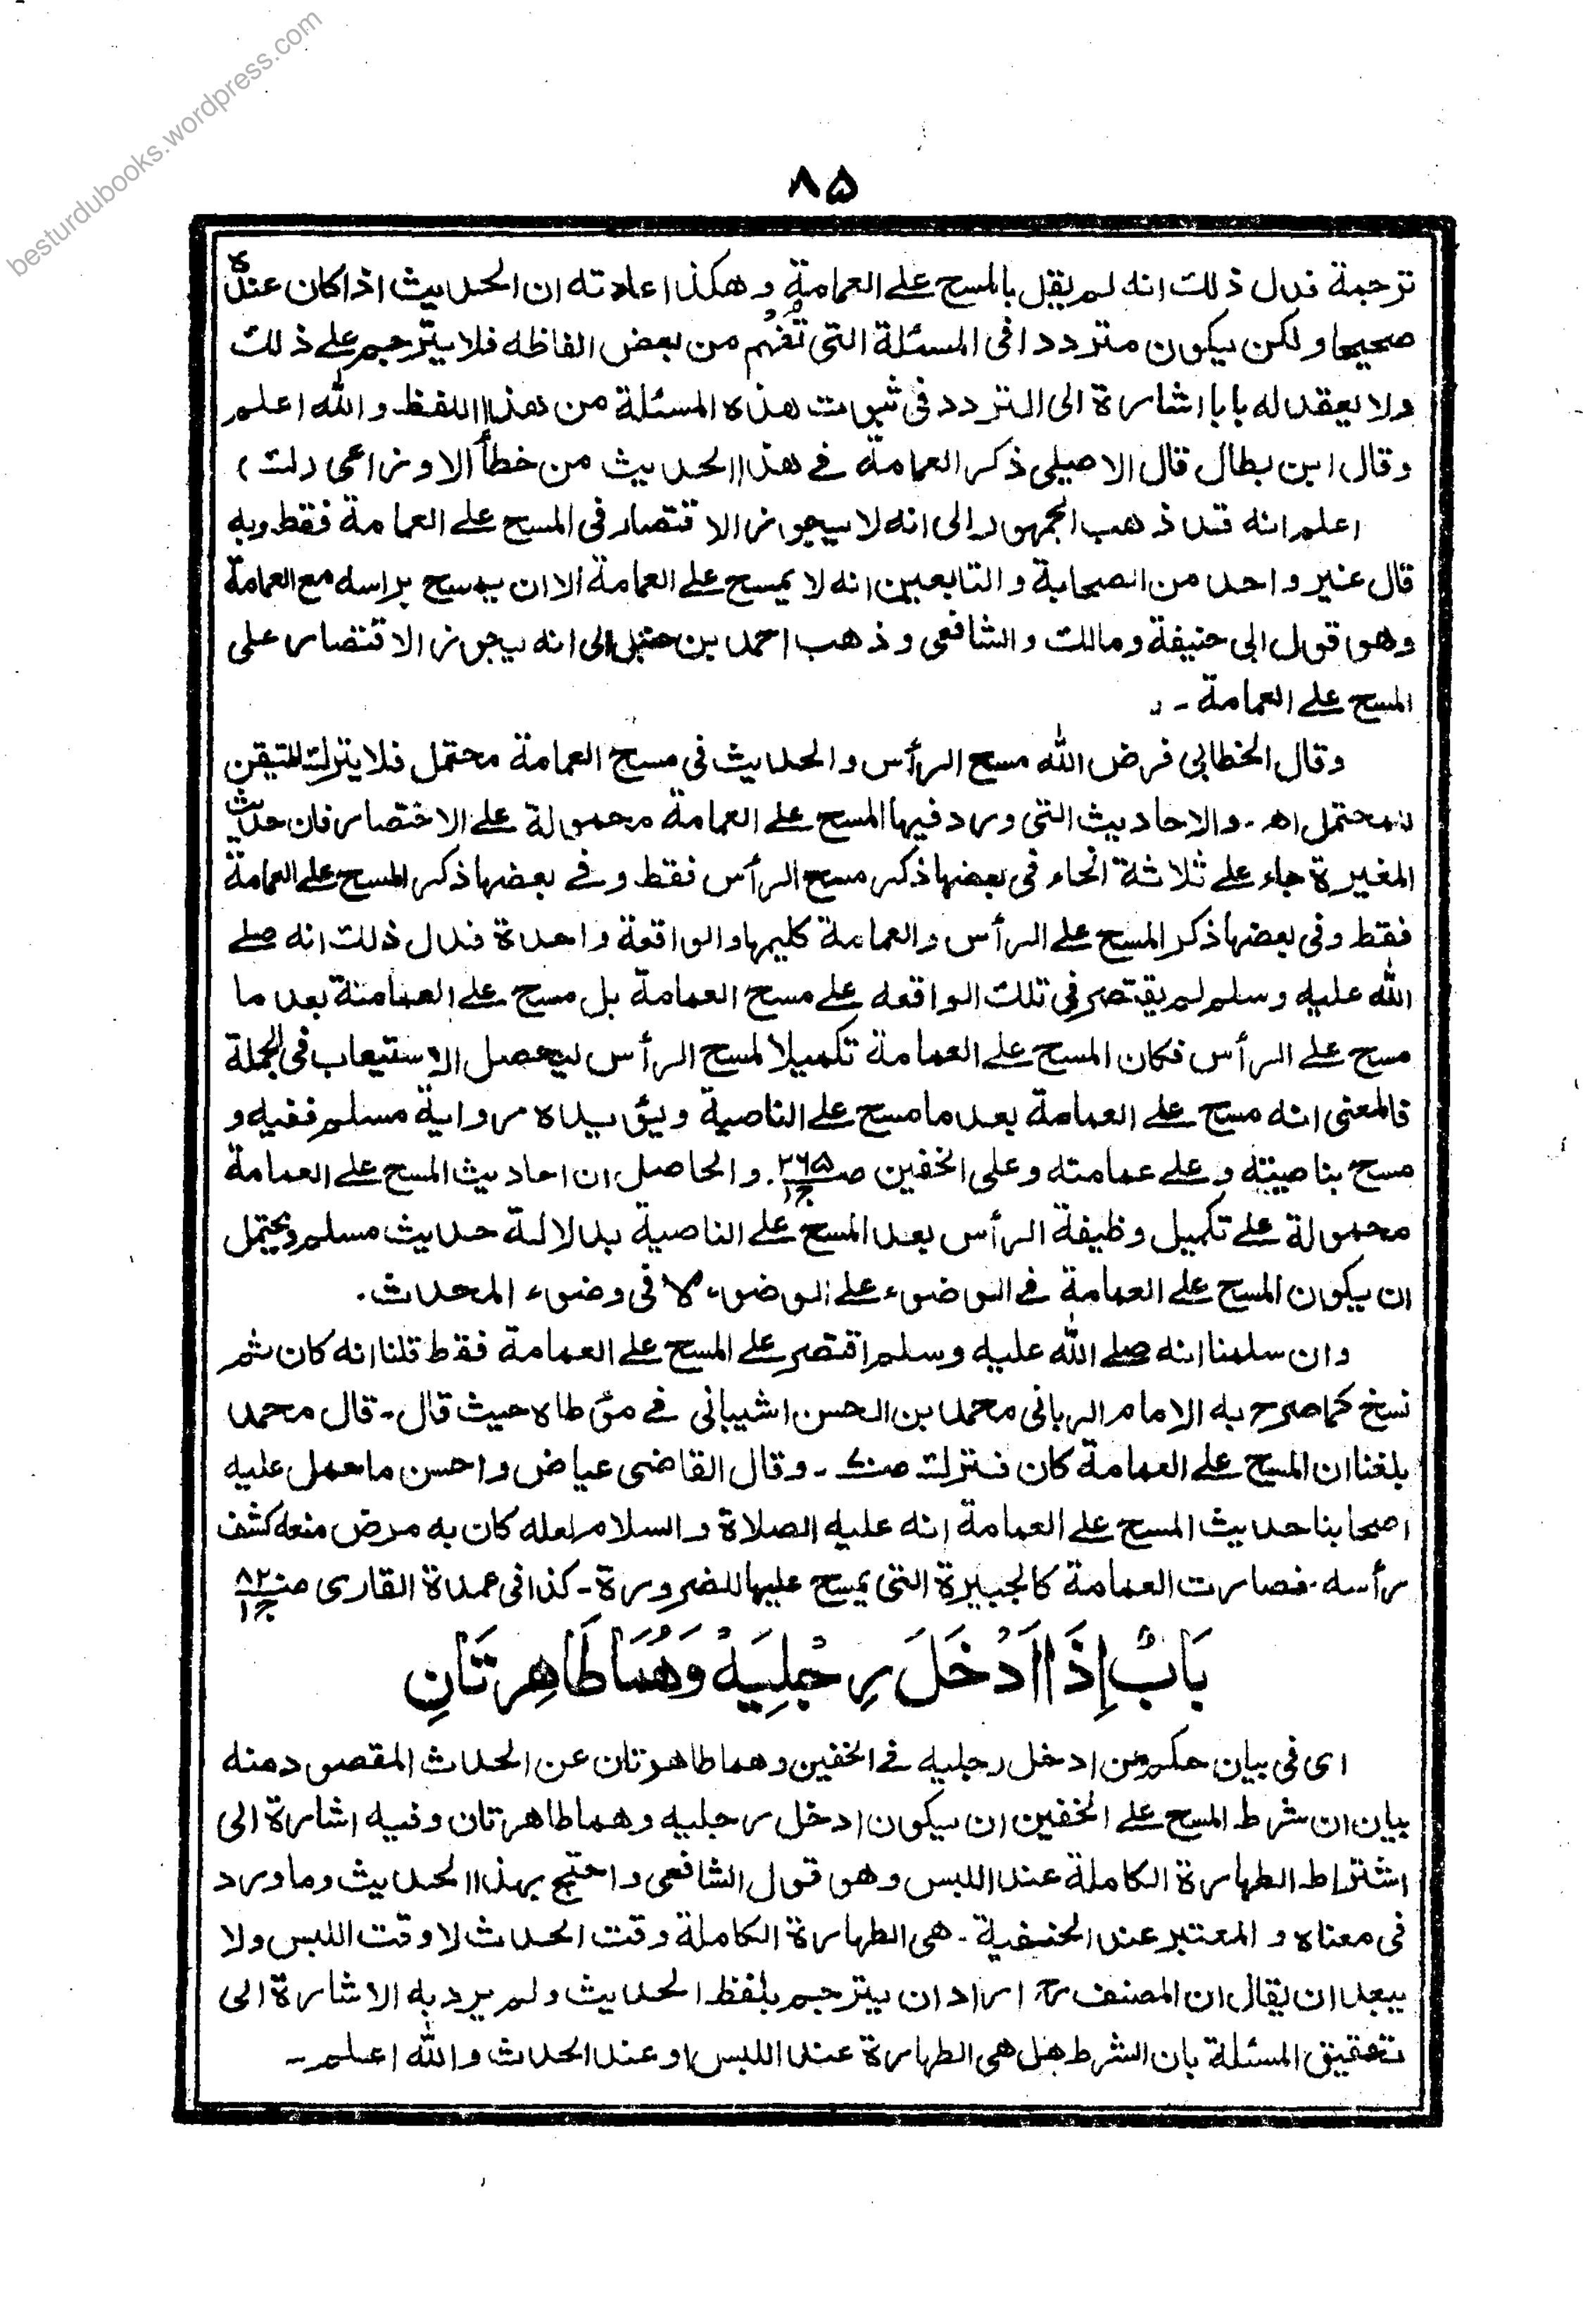 besturdubooks.wordpress.com
۸۵
ترجمة فدل ذلك انه لم يقل بالمسح على العمامة وهكذا عادته ان الحديث اذا كان عنده
صحيحا ولكن يكون مترددا فى المسئلة التى تُفْهَم من بعض الفاظه فلا يترجم على ذلك
ولا يعقد له بابا اشارة الى التردد فى ثبوت هذه المسئلة من هذا اللفظ والله اعلم
وقال ابن بطال قال الاصيلى ذكر العمامة فى هذا الحديث من خطأ الاوزاعى
اعلم انه قد ذهب الجمهور الى انه لا يجوز الاقتصار فى المسح على العمامة فقط وبه
قال غير واحد من الصحابة والتابعين انه لا يمسح على العمامة الا ان يمسح براسه مع العمامة
وهو قول ابى حنيفة ومالك والشافعى وذهب احمد بن حنبل الى انه يجوز الاقتصار على
المسح على العمامة ـ
وقال الخطابى فرض الله مسح الرأس والحديث فى مسح العمامة محتمل فلا يترك المتيقن
للمحتمل اھ ـ والاحاديث التى ورد فيها المسح على العمامة محمولة على الاختصار فان حديث
المغيرة جاء على ثلاثة انحاء فى بعضها ذكر مسح الرأس فقط وفى بعضها ذكر المسح على العمامة
فقط وفى بعضها ذكر المسح على الرأس والعمامة كليهما والواقعة واحدة فدل ذلك انه صلى
الله عليه وسلم لم يقتصر فى تلك الواقعه على مسح العمامة بل مسح على العمامة بعد ما
مسح على الرأس فكان المسح على العمامة تكميلا لمسح الرأس ليحصل الاستيعاب فى الجملة
فالمعنى انه مسح على العمامة بعد ما مسح على الناصية ويؤيده رواية مسلم ففيه و
مسح بناصيته وعلى عمامته وعلى الخفين صـ ۲۶۵ ج۱ . والحاصل ان احاديث المسح على العمامة
محمولة على تكميل وظيفة الرأس بعد المسح على الناصية بدلالة حديث مسلم ويحتمل
ان يكون المسح على العمامة فى الوضوء على الوضوء لا فى وضوء المحدث .
وان سلمنا انه صلى الله عليه وسلم اقتصر على المسح على العمامة فقط قلنا انه كان ثم
نسخ كما صرح به الامام الربانى محمد بن الحسن اشيبانى فى مؤطاه حيث قال ـ قال محمد
بلغنا ان المسح على العمامة كان فترك صـ۷۰ ـ وقال القاضى عياض واحسن ما حمل عليه
اصحابنا حديث المسح على العمامة انه عليه الصلاة والسلام لعله كان به مرض منعه كشف
رأسه . فصارت العمامة كالجبيرة التى يمسح عليها للضرورة ـ كذا فى عمدة القارى صـ ۸۲ ج۱
بَابٌ إِذَا اَدْخَلَ رِجْلَيْهِ وَهُمَا طَاهِرَتَانِ
اى فى بيان حكم من ادخل رجليه فى الخفين وهما طاهرتان عن الحدث المقصود منه
بيان ان شرط المسح على الخفين ان يكون ادخل رجليه وهما طاهرتان وفيه اشارة الى
اشتراط الطهارة الكاملة عند اللبس وهو قول الشافعى واحتج بهذا الحديث وما ورد
فى معناه والمعتبر عند الحنفية ـ هى الطهارة الكاملة وقت الحدث لا وقت اللبس ولا
يبعد ان يقال ان المصنف رح اراد ان يترجم بلفظ الحديث ولم يرد به الاشارة الى
تحقيق المسئلة بان الشرط هل هى الطهارة عند اللبس او عند الحدث والله اعلم ـ